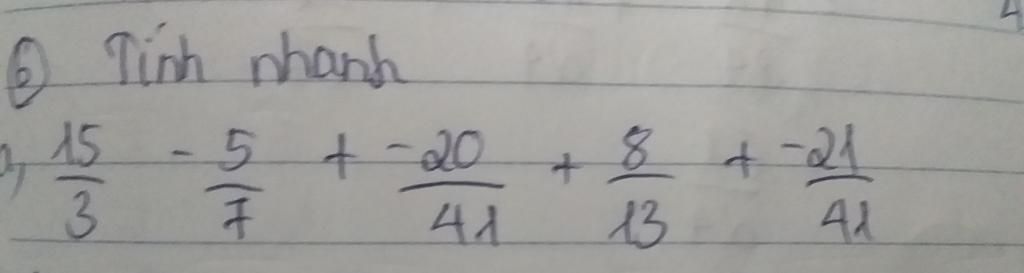 6 Tính nhanh
a, 15/3 - 5/7 + -20/41 + 8/13 + -21/41